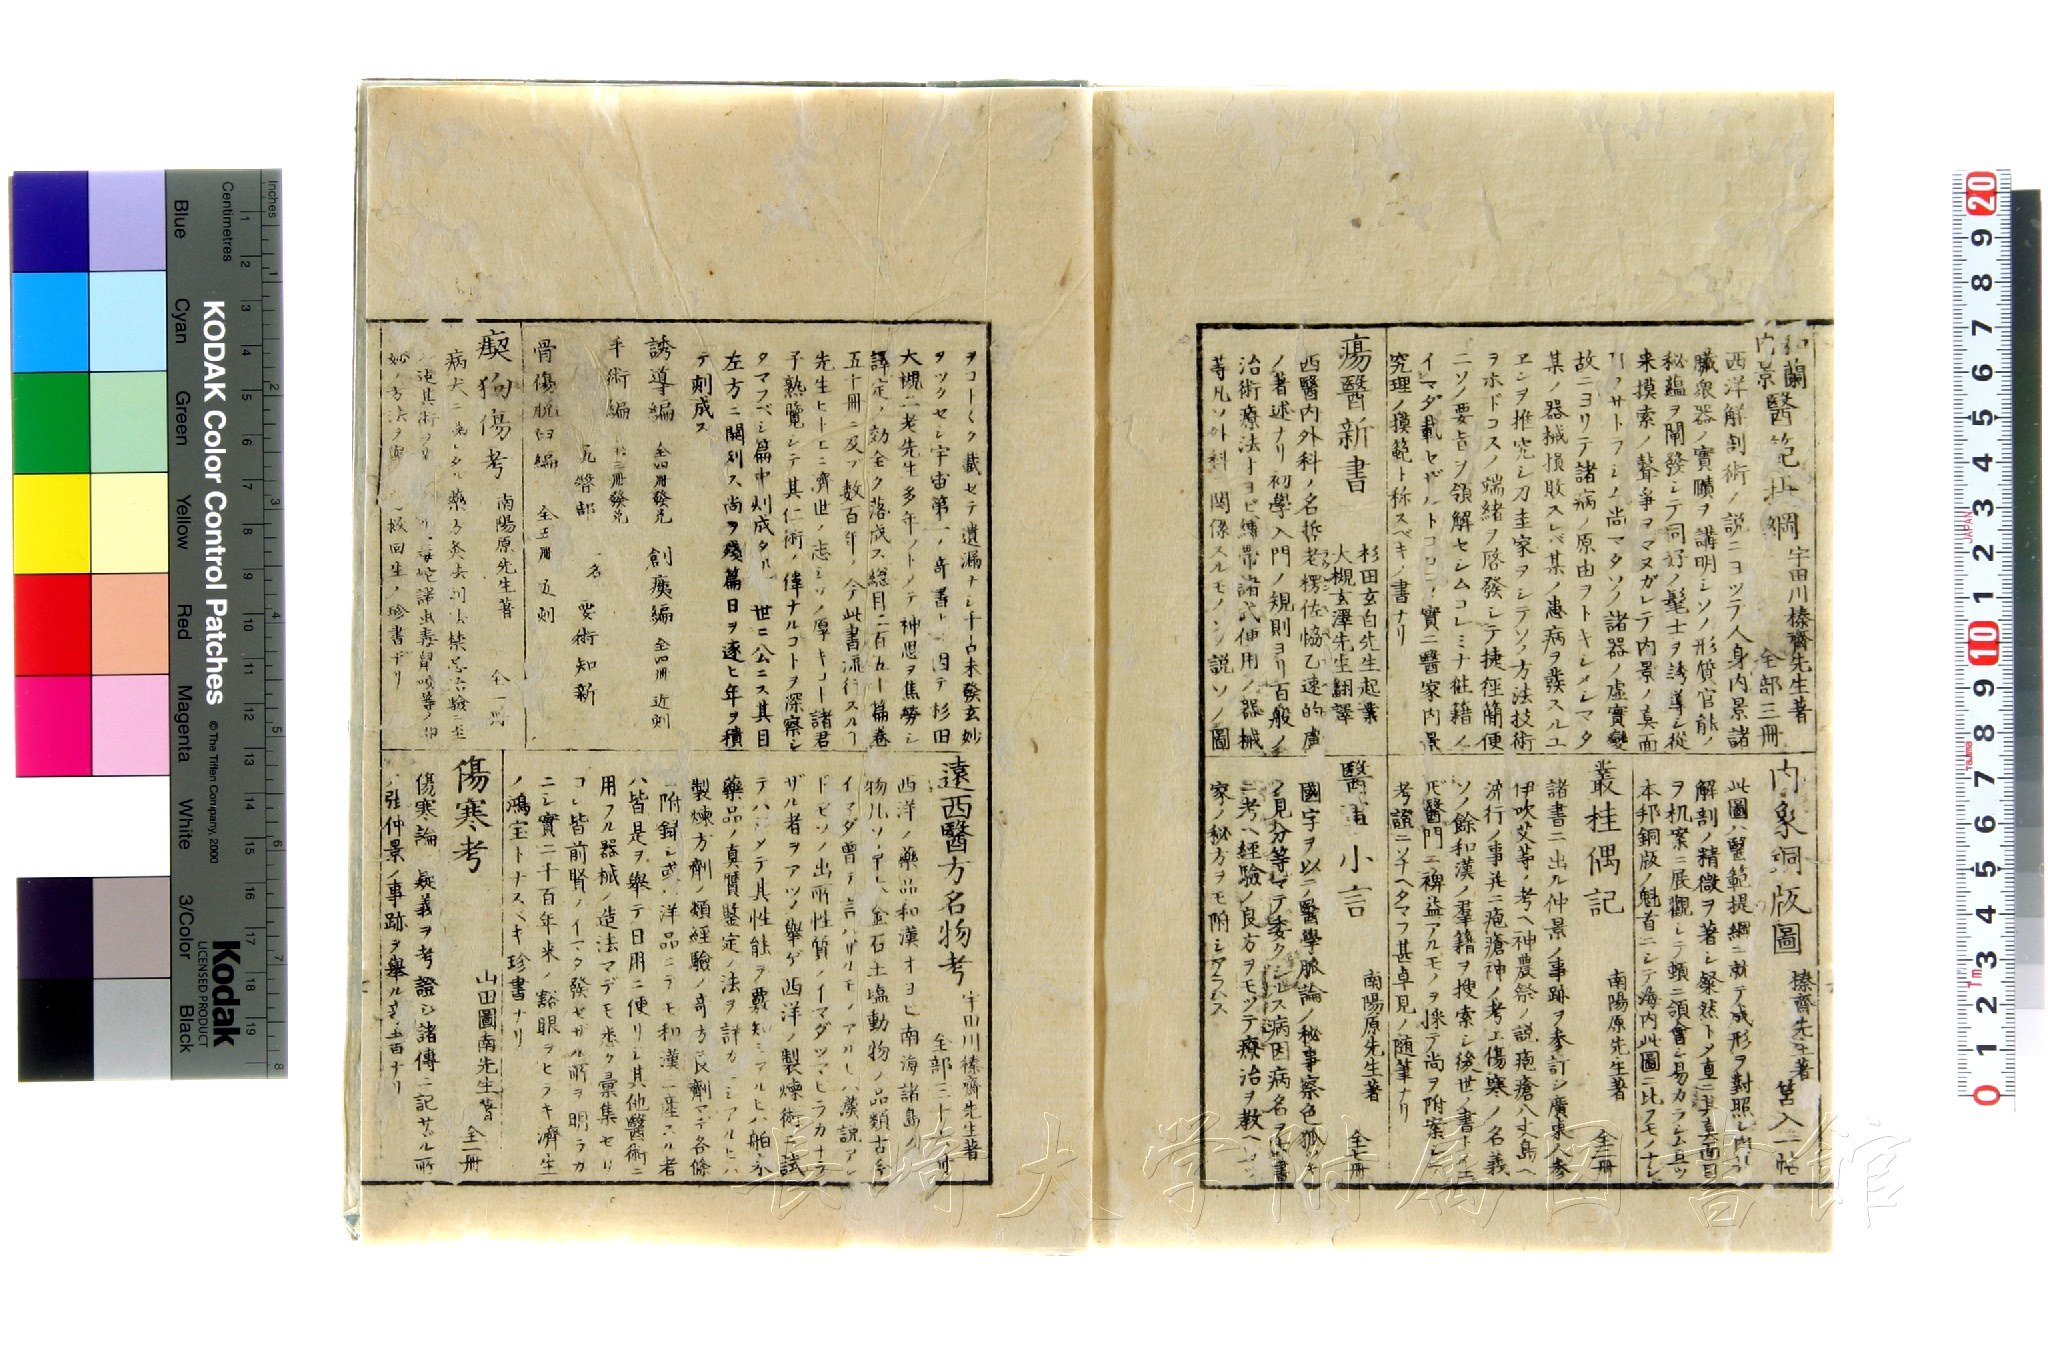 和蘭
内景
醫範提綱
宇田川榛齋先生著
全部三冊
西洋解剖術ノ説ニヨツテ人身内景諸
臓衆器ノ實賾ヲ講明シソノ形質官能ノ
秘蘊ヲ闡發シテ同好ノ髦士ヲ誘導シ從
来摸索ノ聲爭ヲマヌガレテ内景ノ真面
ヲサトラシメ尚マタソノ諸器ノ虚實變
故ニヨリテ諸病ノ原由ヲトキシメシマタ
某ノ器械損敗スレバ某ノ患病ヲ發スルユ
ヱンヲ推究シ刀圭家ヲシテソノ方法技術
ヲホドコスノ端緒ヲ啓發シテ捷徑簡便
ニソノ要旨ヲ領解セシムコレミナ徃籍ノ
イマダ載セザルトコロニノ實ニ醫家内景
究理ノ摸範ト称スベキノ書ナリ
瘍醫新書
杉田玄白先生起業
大槻玄澤先生翻譯
西醫内外科ノ名哲老楞佐協乙速的盧
ノ著述ナリ初學入門ノ規則ヨリ百般ノ手
治術療法ナヨビ縛帯諸式俥用ノ器械
等凡ソ外科ニ関係スルモノソノ説ソノ圖
内象銅版圖
榛齋先生著
筥入二帖
此圖ハ醫範提綱ニ就テ成形ヲ對照シ内外
解剖ノ精微ヲ著シ粲然トメ直ニ其真面目
ヲ机案ニ展觀シテ頓ニ領會シ易カラシム且ツ
本邦銅版ノ魁首ニシテ海内此圖ニ比フモノナシ
叢桂偶記
南陽原先生著
全二冊
諸書ニ出ル仲景ノ事跡ヲ參訂シ廣東人参
伊吹艾等ノ考ヘ神農祭ノ説疱瘡八丈島ヘ
流行ノ事并ニ疱瘡神ノ考エ傷寒ノ名義
ソノ餘和漢ノ羣籍ヲ搜索シ後世ノ書トイエ
𪜈醫門ニ裨益アルモノヲ採テ尚ヲ附案シテ
考證ニソナヘタマフ甚卓見ノ随筆ナリ
醫事小言
南陽原先生著
全七冊
國字ヲ以ニ醫學ノ脈論ノ秘事察色狐ツキ
ノ見分等マデ委クシルス病因病名ヲ古書
ニ考ヘ經驗ノ良方ヲモツテ療治ヲ教ヘソノ
家ノ秘方ヲモ附シアラハス
ヲコトくク載セテ遺漏ナシ千古未發玄妙
ヲツクセシ宇宙第一ノ奇書ナリ因テ杉田
大槻二老先生多年ノトノテ神思ヲ焦勞シ
譯定ノ効全ク落成ス總目二百五十篇巻
五十冊ニ及フ数百年ノ今此書流行スルヿ
先生ヒトヒニ濟世ノ志シソノ厚キコト諸君
子熟覽シテ其仁術ノ偉ナルコトヲ深察シ
タマフベシ篇中刻成タル世ニ公ニス其目
左方ニ開列ス尚ヲ殘篇日ヲ逐ヒ年ヲ積
テ刻成ス
誘導編 全四冊發兌
創痍編 全四冊近刻
手術編 十二冊發兌
瓦 瞥 部 一名要術知新
骨傷脱臼編 全五冊 近刻
瘈狗傷考
南陽原先生著
全一冊
病犬ニ傷レタル藥方灸法刺法禁忌治驗ニ至
毒蛇諸虫毒鼠咬等ノ
妙ノ方法ヲ 救回生ノ珍書ナリ
遠西醫方名物考
宇田川榛齋先生著
全部三十六冊
西洋ノ藥品和漢オヨヒ南海諸島ノ
物凡ソ草木金石土塩動物ノ品類古今
イマダ曾テ言ハザルモノアルハ漢説アレ
ドモソノ出所性質ノイマダツマヒラカナラ
ザル者ヲアツメ舉ゲ西洋ノ製煉術ニ試
テハジメテ其性能ヲ覈知シアルヒハ舶来
藥品ノ真贋鑒定ノ法ヲ詳カニシアルヒハ
製煉方劑ノ類經驗ノ奇方良劑マデ各條
ニ附録シ或ハ洋品ニテモ和漢ニ産スル者
ハ皆是ヲ舉テ日用ニ便リシ其他醫術ニ
用フル器械ノ造法マデモ悉ク彙集セリ
コレ皆前賢ノイマタ發セザル所ヲ明ラカ
ニシ實ニ千百年来ノ豁眼ヲヒラキ濟生
ノ鴻宝トナスベキ珍書ナリ
傷寒考
山田圖南先生著
全一冊
傷寒論ノ疑義ヲ考證シ諸傳ニ記ザル所
ノ張仲景ノ事跡ヲ舉ル
長崎大学附属図書館
Inches
Centimetres
KODAK Color Control Patches
© The Tiffen Company, 2000
Kodak
LICENSED PRODUCT
Blue Cyan Green Yellow Red Magenta White 3/Color Black